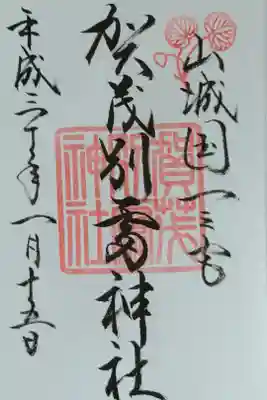 山城国一之宮
賀茂別雷神社
平成三十年一月十五日
賀茂
別雷
神社